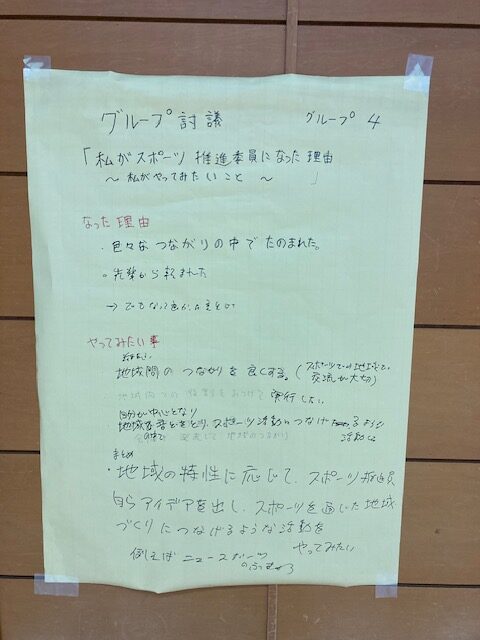 グループ討議 グループ 4
「私がスポーツ推進委員になった理由
～私がやってみたいこと～」
なった理由
・色々なつながりの中でたのまれた。
・先輩から頼まれた
→
やってみたい事
地域間のつながりを良くする。(スポーツでの
交流が大切)
実行したい
自分が中心となり
地域 スポーツ活動につなげるような
活動
まとめ
・地域の特性に応じて、スポーツ推進員
自らアイデアを出し、スポーツを通じた地域
づくりにつなげるような活動を
やってみたい
例えば ニュースポーツ
の